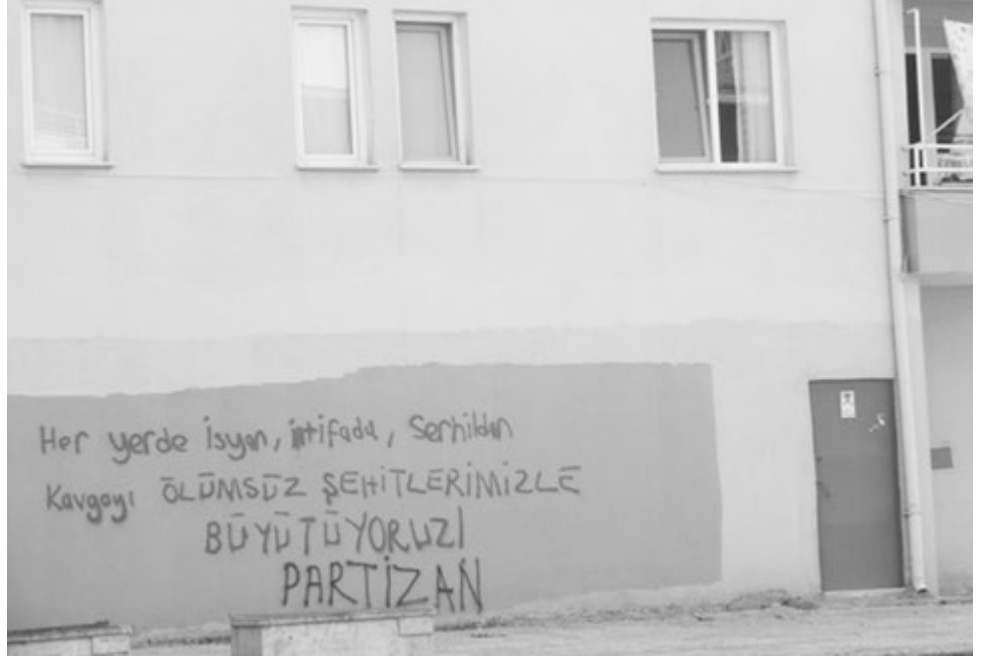 Her yerde İsyan, intifada, Serhildan
Kavgayı ÖLÜMSÜZ ŞEHİTLERİMİZLE
BÜYÜTÜYORUZ!
PARTİZAN